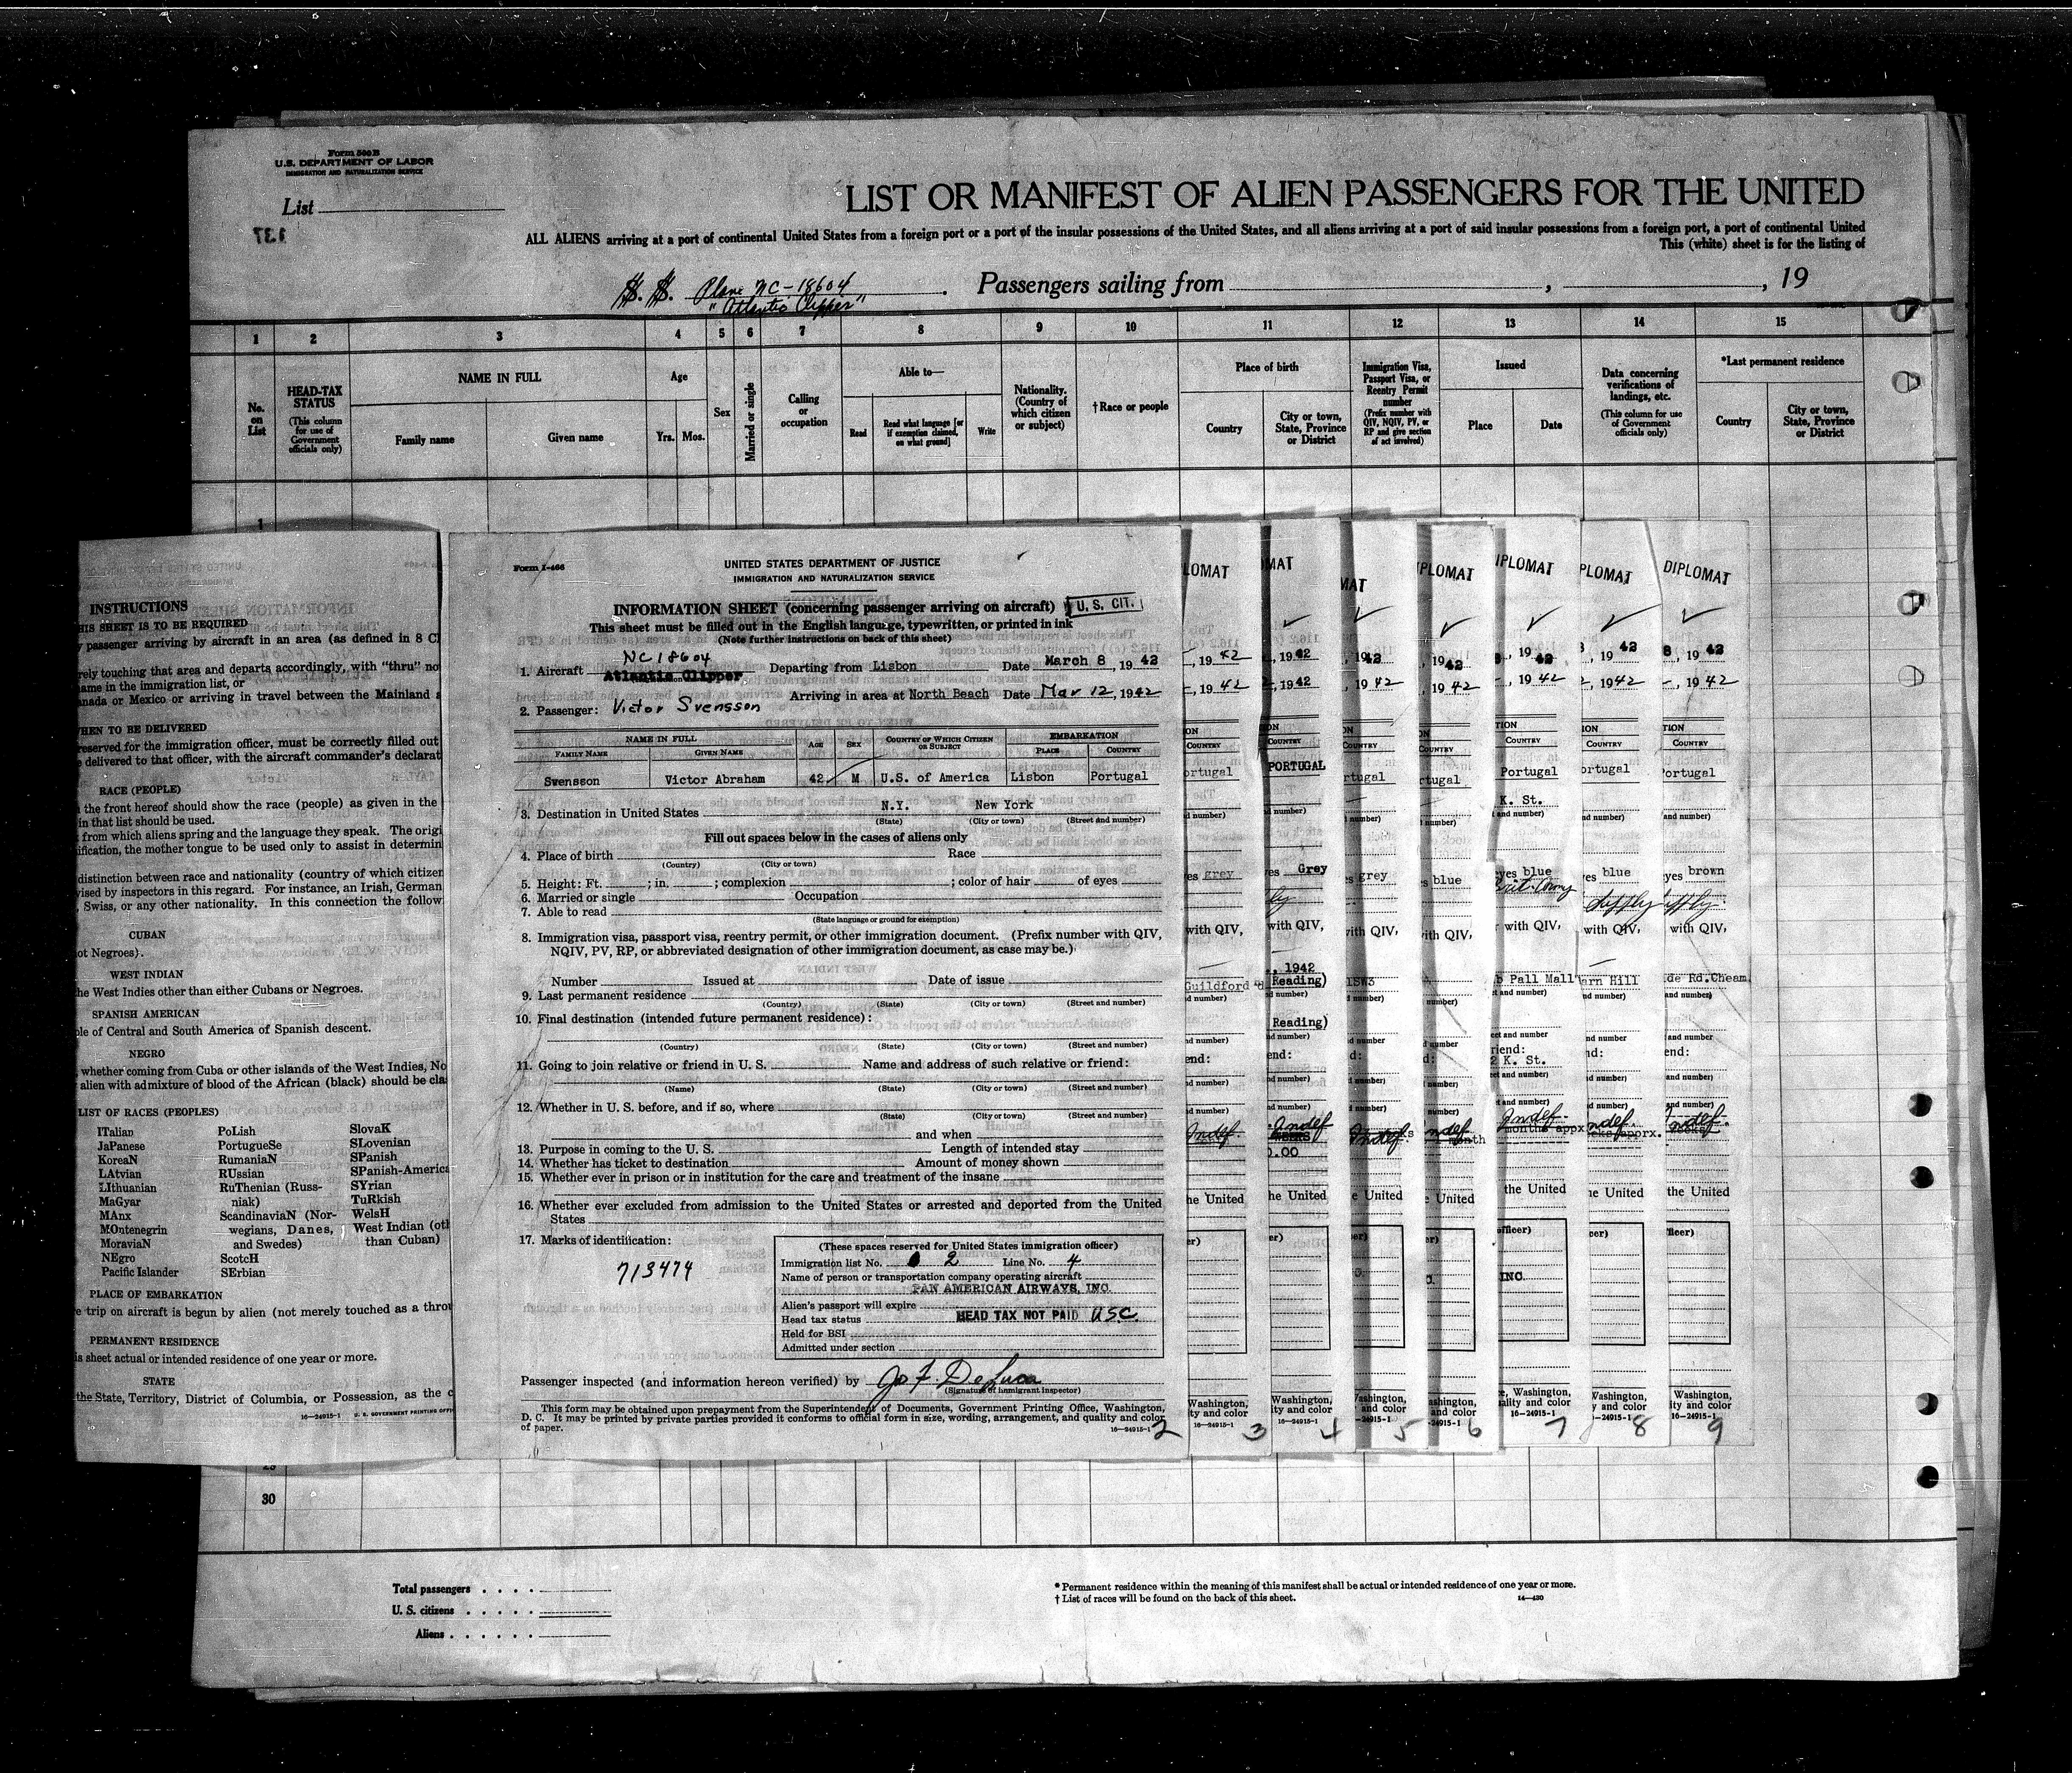 Form 500B
U.S. DEPARTMENT OF LABOR
IMMIGRATION AND NATURALIZATION SERVICE
List
137
LIST OR MANIFEST OF ALIEN PASSENGERS FOR THE UNITED
ALL ALIENS arriving at a port of continental United States from a foreign port or a port of the insular possessions of the United States, and all aliens arriving at a port of said insular possessions from a foreign port, a port of continental United
This (white) sheet is for the listing of
S. S. Plane NC-18604 Passengers sailing from , , 19
"Atlantic Clipper"
1 2 3 4 5 6 7 8 9 10 11 12 13 14 15
No. on List
HEAD-TAX STATUS
(This column for use of Government officials only)
NAME IN FULL
Family name Given name
Age
Yrs. Mos.
Sex
Married or single
Calling or occupation
Able to—
Read
Read what language [or if exemption claimed, on what ground]
Write
Nationality. (Country of which citizen or subject)
†Race or people
Place of birth
Country
City or town, State, Province or District
Immigration Visa, Passport Visa, or Reentry Permit number
(Prefix number with QIV, NQIV, PV, or RP and give section of act involved)
Issued
Place Date
Data concerning verifications of landings, etc.
(This column for use of Government officials only)
*Last permanent residence
Country
City or town, State, Province or District
1
INSTRUCTIONS
HIS SHEET IS TO BE REQUIRED
y passenger arriving by aircraft in an area (as defined in 8 C
rely touching that area and departs accordingly, with "thru" no
ame in the immigration list, or
anada or Mexico or arriving in travel between the Mainland a
HEN TO BE DELIVERED
reserved for the immigration officer, must be correctly filled out
e delivered to that officer, with the aircraft commander's declarat
RACE (PEOPLE)
the front hereof should show the race (people) as given in the
in that list should be used.
from which aliens spring and the language they speak. The origi
ification, the mother tongue to be used only to assist in determin
distinction between race and nationality (country of which citizen
vised by inspectors in this regard. For instance, an Irish, German
, Swiss, or any other nationality. In this connection the follow
CUBAN
ot Negroes).
WEST INDIAN
he West Indies other than either Cubans or Negroes.
SPANISH AMERICAN
ple of Central and South America of Spanish descent.
NEGRO
whether coming from Cuba or other islands of the West Indies, No
alien with admixture of blood of the African (black) should be cla
LIST OF RACES (PEOPLES)
ITalian PoLish SlovaK
JaPanese PortugueSe SLovenian
KoreaN RumaniaN SPanish
LAtvian RUssian SPanish-America
LIthuanian RuThenian (Russ- SYrian
MaGyar niak) TuRkish
MAnx ScandinaviaN (Nor- WelsH
MOntenegrin wegians, Danes, West Indian (oth
MoraviaN and Swedes) than Cuban)
NEgro ScotcH
Pacific Islander SErbian
PLACE OF EMBARKATION
e trip on aircraft is begun by alien (not merely touched as a throu
PERMANENT RESIDENCE
is sheet actual or intended residence of one year or more.
STATE
the State, Territory, District of Columbia, or Possession, as the c
16—24915-1 U. S. GOVERNMENT PRINTING OFFI
Form I-466
UNITED STATES DEPARTMENT OF JUSTICE
IMMIGRATION AND NATURALIZATION SERVICE
INFORMATION SHEET (concerning passenger arriving on aircraft) U. S. CIT.
This sheet must be filled out in the English language, typewritten, or printed in ink
(Note further instructions on back of this sheet)
NC18604
1. Aircraft Atlantic Clipper Departing from Lisbon Date March 8, 1942
Arriving in area at North Beach Date Mar 12, 1942
2. Passenger: Victor Svensson
NAME IN FULL AGE SEX COUNTRY OF WHICH CITIZEN OR SUBJECT EMBARKATION
FAMILY NAME GIVEN NAME PLACE COUNTRY
Swensson Victor Abraham 42 M U.S. of America Lisbon Portugal
N.Y. New York
3. Destination in United States
(State) (City or town) (Street and number)
Fill out spaces below in the cases of aliens only
4. Place of birth Race
(Country) (City or town)
5. Height: Ft. ; in. ; complexion ; color of hair of eyes
6. Married or single Occupation
7. Able to read
(State language or ground for exemption)
8. Immigration visa, passport visa, reentry permit, or other immigration document. (Prefix number with QIV,
NQIV, PV, RP, or abbreviated designation of other immigration document, as case may be.)
Number Issued at Date of issue
9. Last permanent residence
(Country) (State) (City or town) (Street and number)
10. Final destination (intended future permanent residence):
(Country) (State) (City or town) (Street and number)
11. Going to join relative or friend in U. S. Name and address of such relative or friend:
(Name) (State) (City or town) (Street and number)
12. Whether in U. S. before, and if so, where
(State) (City or town) (Street and number)
and when
13. Purpose in coming to the U. S. Length of intended stay
14. Whether has ticket to destination Amount of money shown
15. Whether ever in prison or in institution for the care and treatment of the insane
16. Whether ever excluded from admission to the United States or arrested and deported from the United
States
17. Marks of identification:
713474
(These spaces reserved for United States immigration officer)
Immigration list No. 2 Line No. 4
Name of person or transportation company operating aircraft
PAN AMERICAN AIRWAYS, INC.
Alien's passport will expire
Head tax status HEAD TAX NOT PAID USC
Held for BSI
Admitted under section
Passenger inspected (and information hereon verified) by
(Signature of immigrant inspector)
This form may be obtained upon prepayment from the Superintendent of Documents, Government Printing Office, Washington,
D. C. It may be printed by private parties provided it conforms to official form in size, wording, arrangement, and quality and color
of paper. 16—24915-1
2 3 4 5 6 7 8 9
LOMAT MAT MAT PLOMAT IPLOMAT PLOMAT DIPLOMAT
ortugal PORTUGAL rtugal rtugal Portugal ortugal Portugal
K. St.
es grey Grey s grey s blue eyes blue blue eyes brown
with QIV, with QIV, with QIV, with QIV, with QIV, with QIV, with QIV,
, 1942
Guildford Reading) 1SW3 b Pall Mall arn Hill de Rd.Cheam
Reading)
2 K. St.
Indef. Indef Indef. Indef Indef. Indef. Indef.
0.00
he United he United e United e United the United he United the United
INC.
30
Total passengers
U. S. citizens
Aliens
* Permanent residence within the meaning of this manifest shall be actual or intended residence of one year or more.
† List of races will be found on the back of this sheet. 14—430